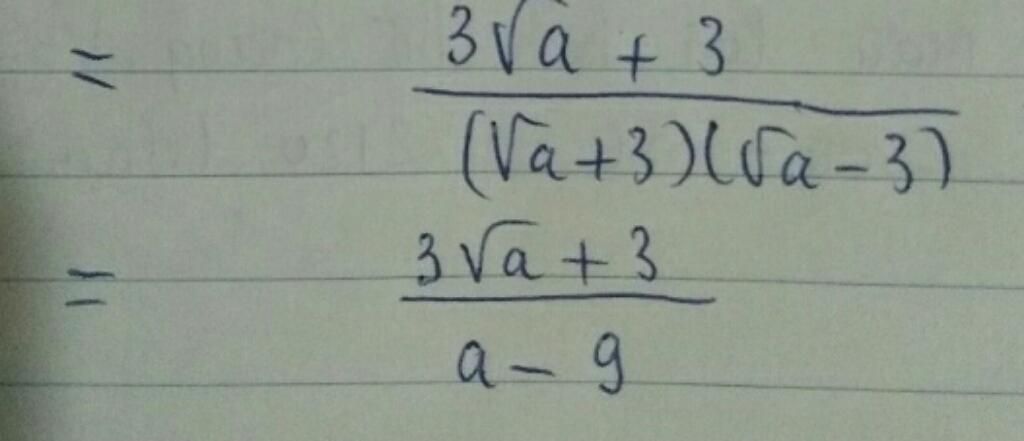 = (3√a + 3)/((√a+3)(√a-3))
= (3√a + 3)/(a - 9)